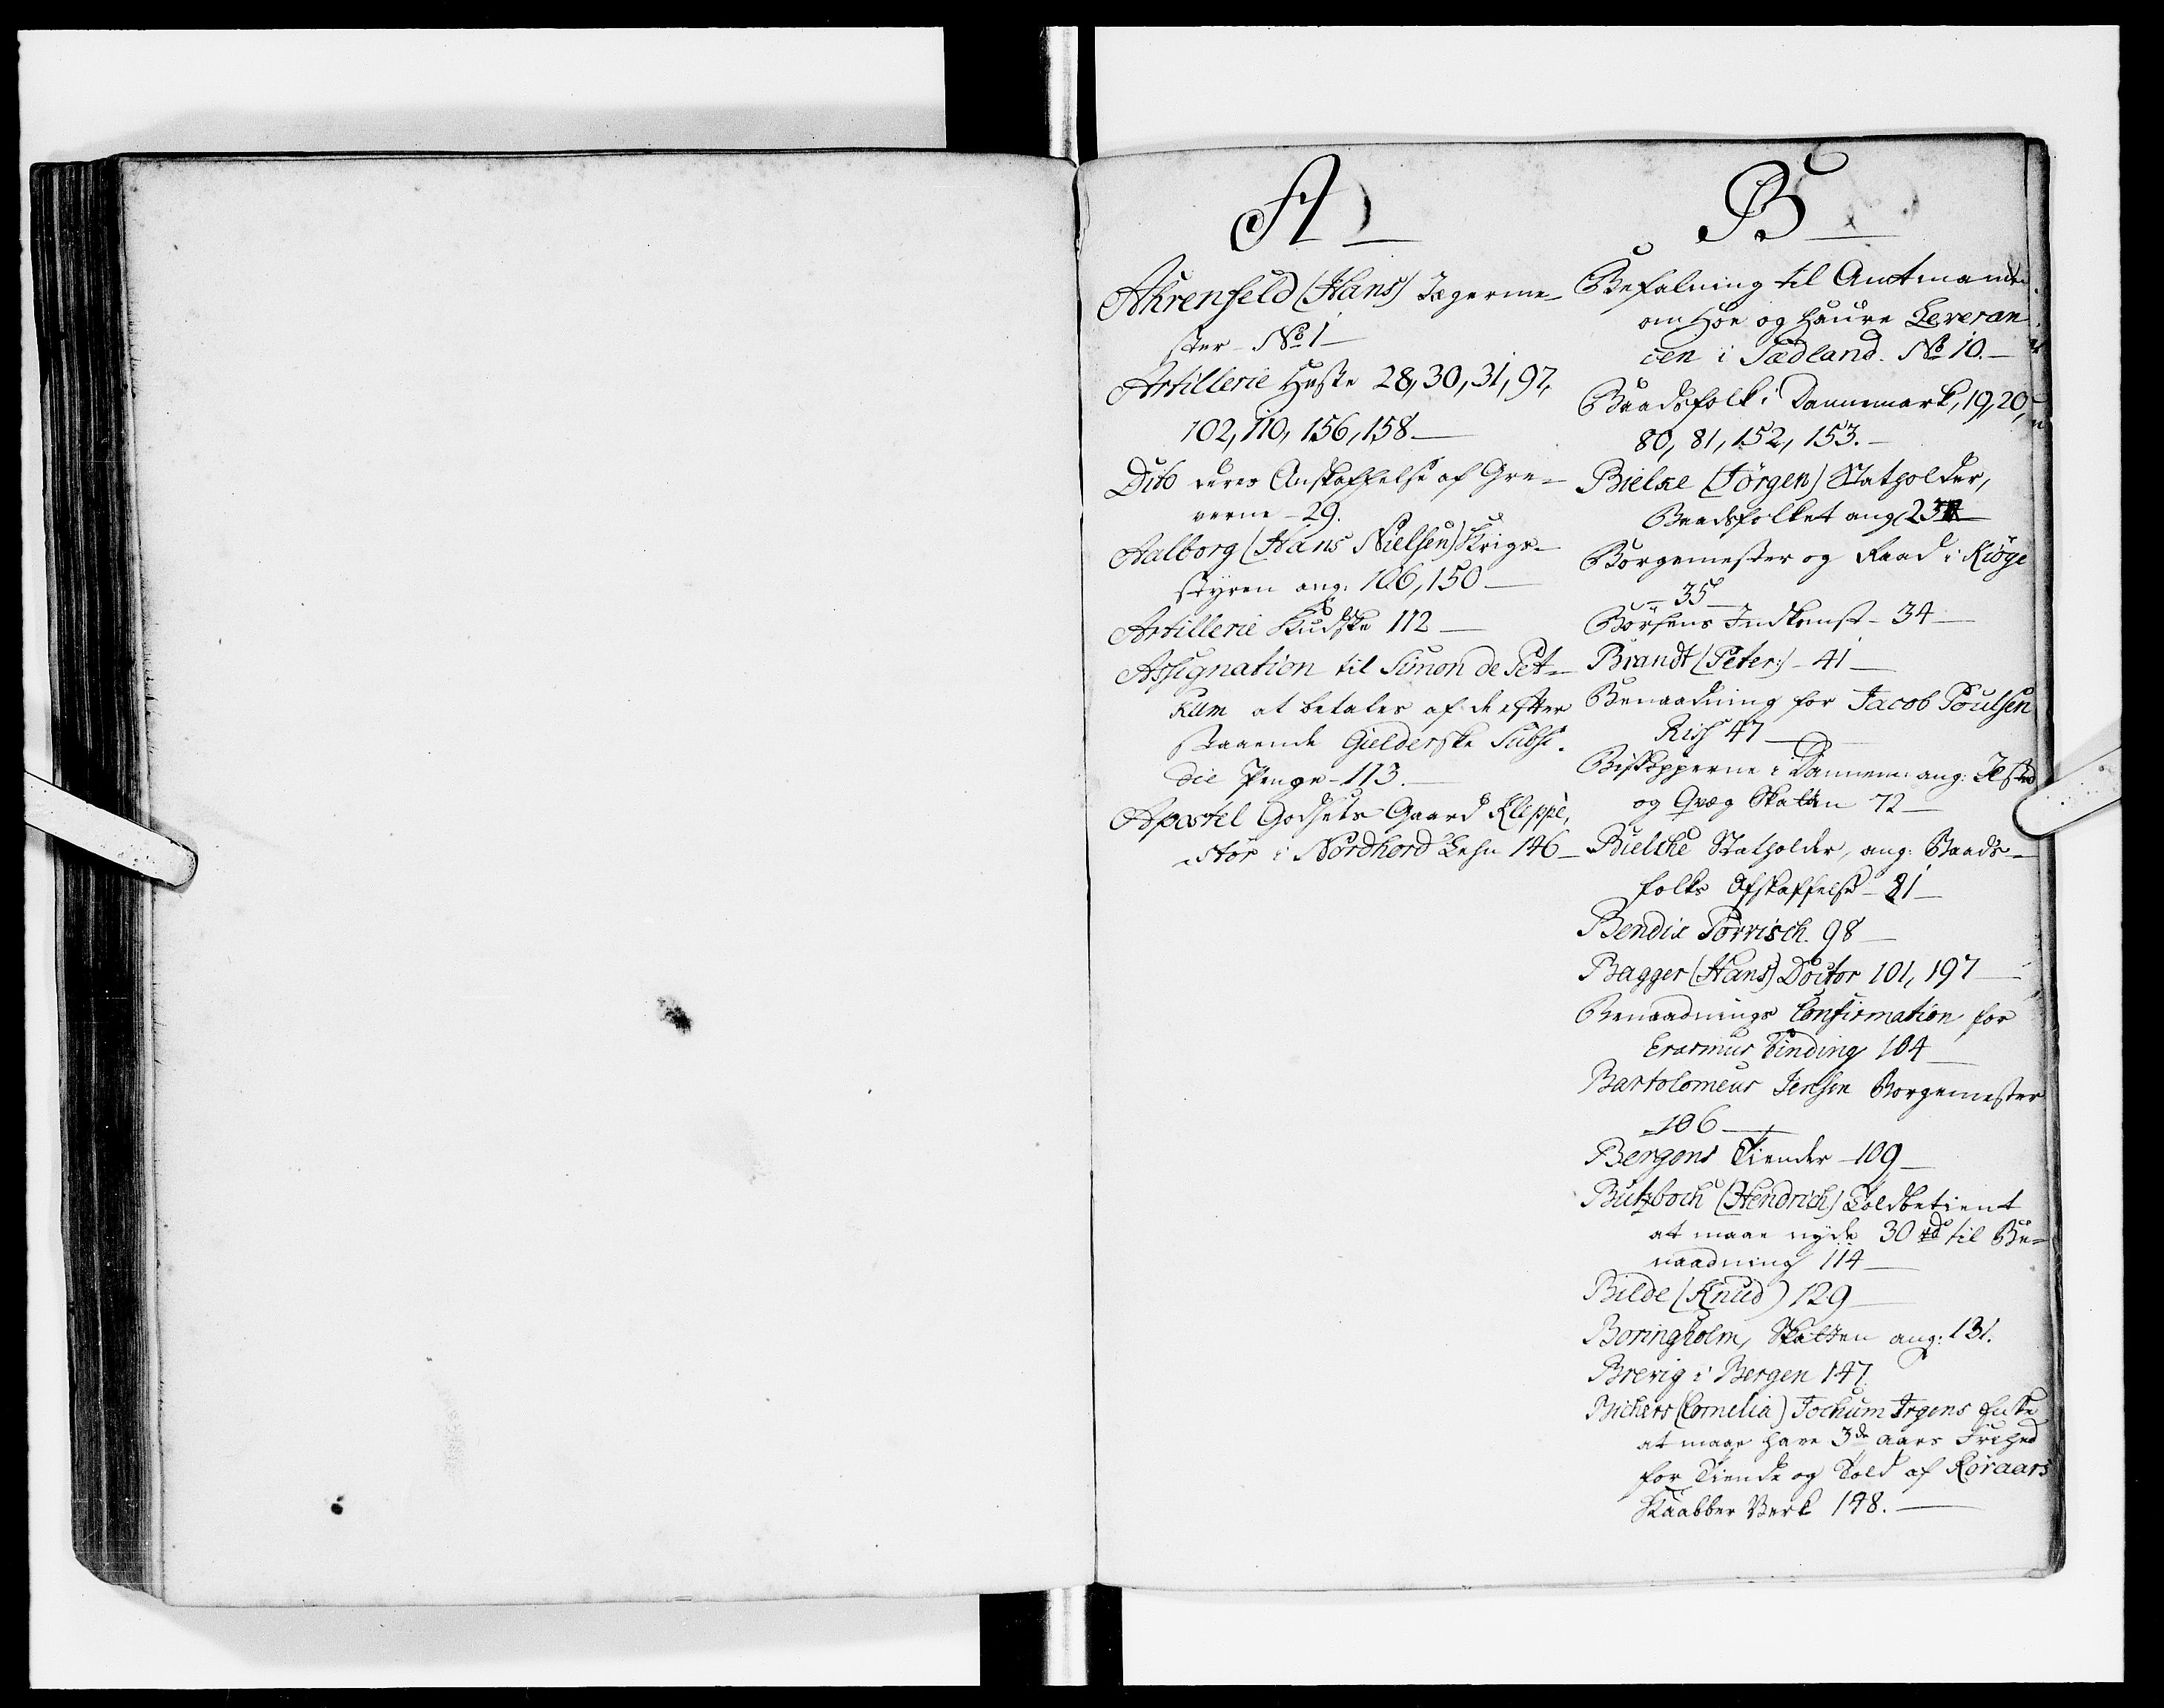 A
Ahrenfeld (Hans) Jægerme-
ster No 1
Artillerie Heste 28, 30, 31, 97,
102, 110, 156, 158
Dito deres Anskaffelse af Gre-
verne - 29.
Aalborg (Hans Nielsen) Krigs-
styren ang: 106, 150
Artillerie Kudske 112
Assignation til Simon de Pet-
kum at betales af de efter
staaende Gielderske Subsi-
die Penge - 113.
Apostel Godsets Gaard Kleppe,
stör i Nordhord Lehn 146
B
Befalning til Amtmændene
om Höe og Haure Leveran-
cen i Sædland. No 10.
Baadsfolk i Dannemark, 19, 20,
80, 81, 152, 153.
Bielke (Jörgen) Statholder,
Baadsfolket ang 23
Borgemester og Raad i Kiöge
35
Börsens Indkomst - 34
Brandt (Peter:) - 41
Benaadning for Jacob Poulsen
Riis 47
Biskopperne i Dannem: ang: Ildsted
og Qvæg Skatten 72
Bielche Statholder, ang: Baads-
folks Afskaffelse - 81
Bendix Törrisch. 98
Bagger (Hans) Doctor 101, 197
Benaadnings Confirmation for
Erasmus Vinding 104
Bartolomeus Jensen Borgemester
106
Bergens Tiender - 109
Butzboch (Hendrich) Toldbetient
at maae nyde 30 rd til Be-
naadning 114
Bilde (Knud) 129
Boringholm, Skatten ang: 131.
Brevig i Bergen 147
Bichers (Cornelia) Jochum Irgens Enke
at maae have 3de aars Frihed
for Tiende og Told af Röraars
Kaabber Verk 148.